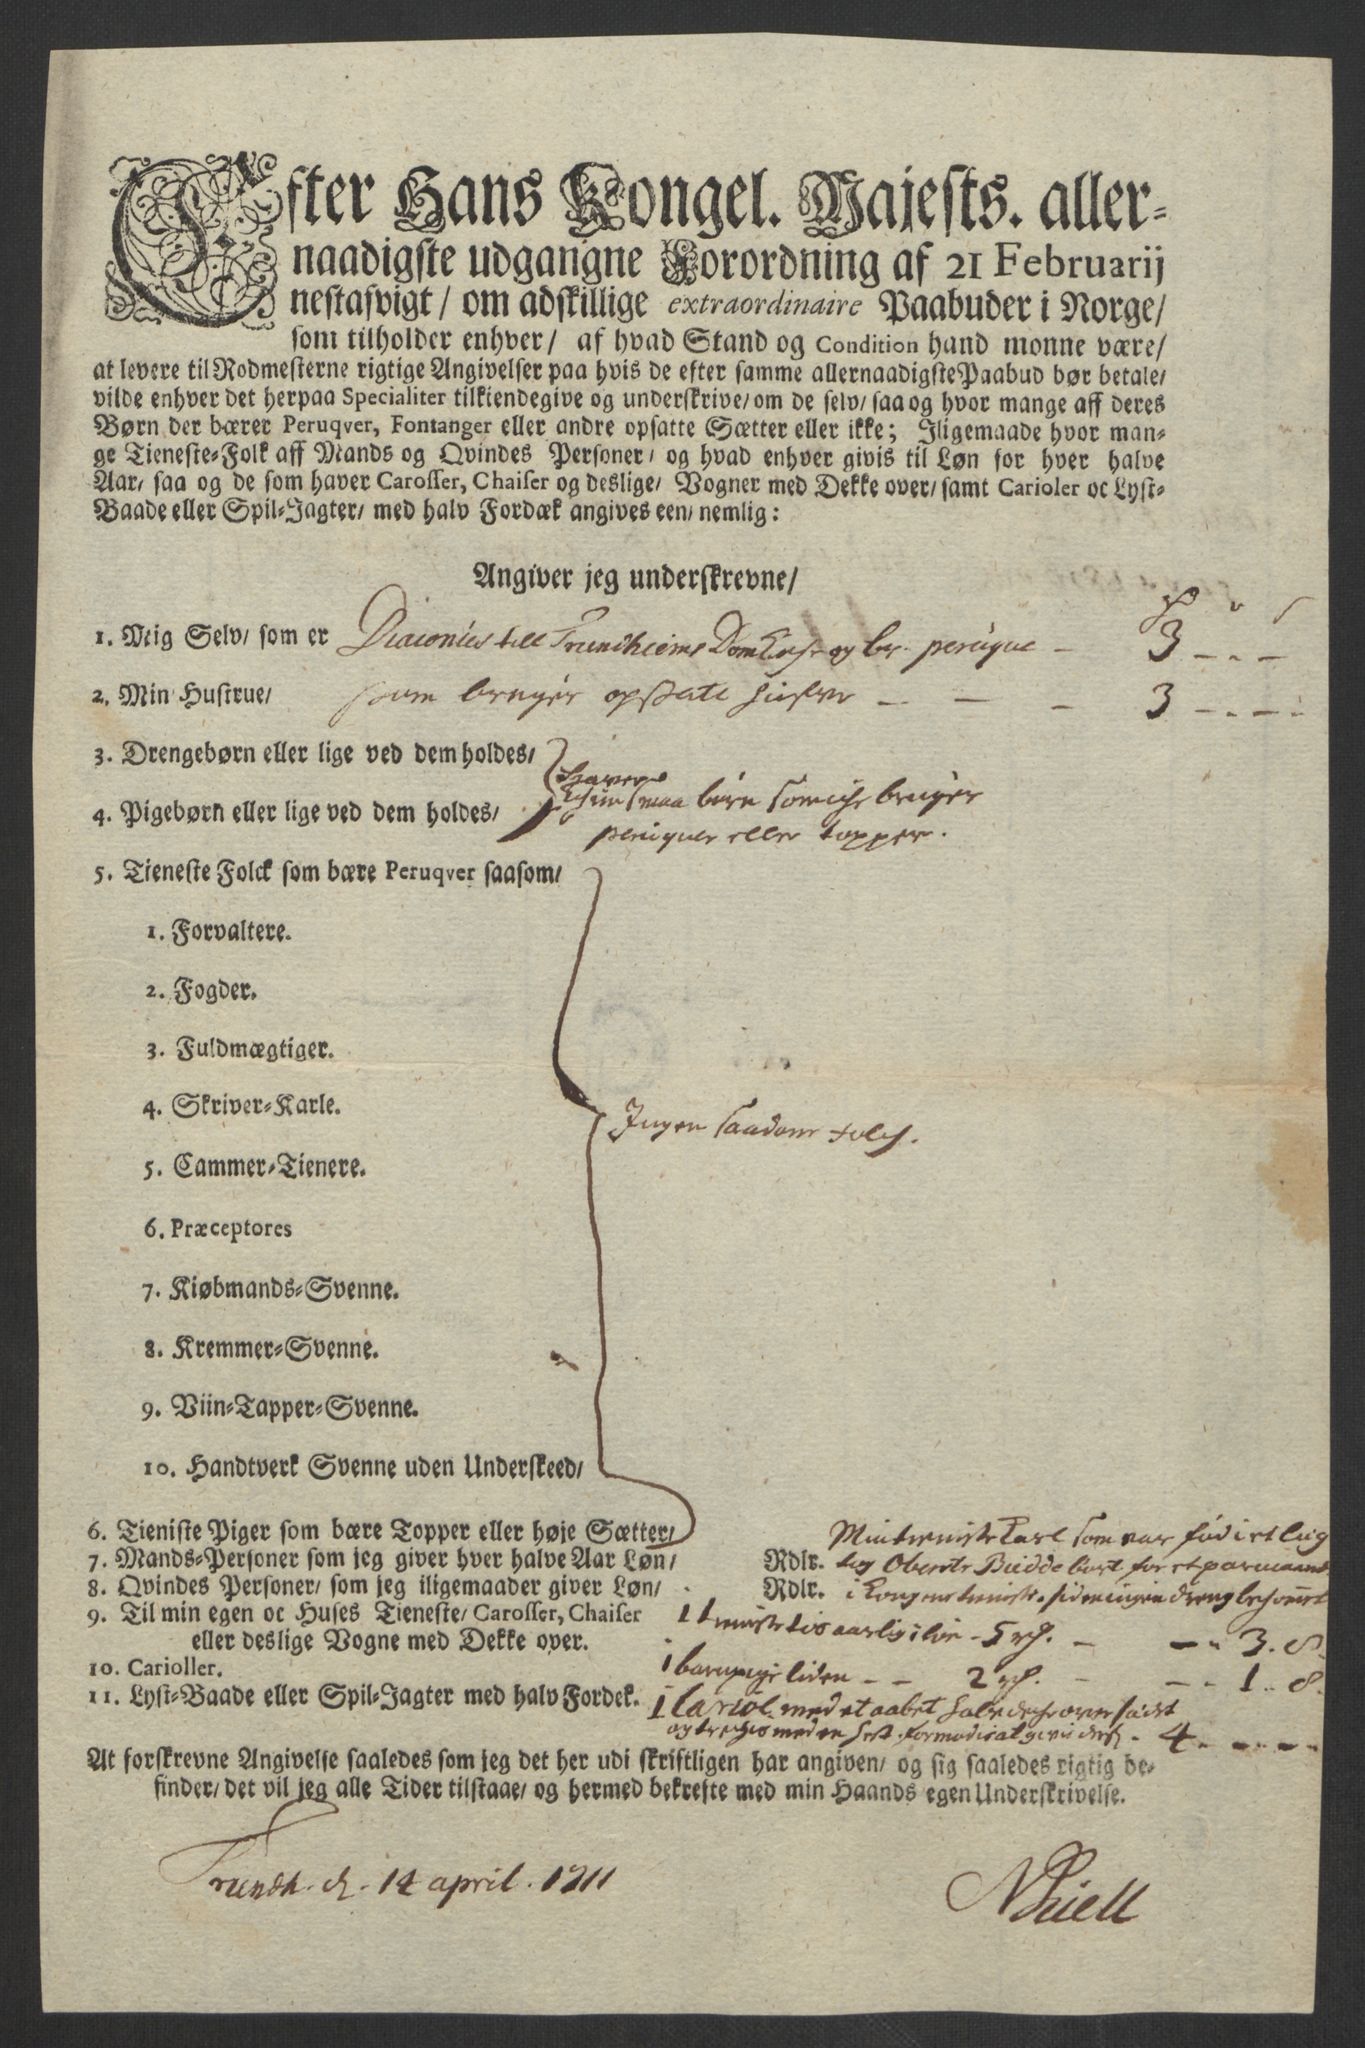 Efter Hans Kongel. Majests. aller-
naadigste udgangne Forordning af 21 Februarij
nestasvigt/ om adskillige extraordinaire Paabuder i Norge/
som tilholder enhver/ af hvad Stand og Condition hand monne være/
at levere til Rodmesterne rigtige Angivelser paa hvis de efter samme allernaadigste Paabud bør betale/
vilde enhver det herpaa Specialiter tilkiendegive og underskrive/ om de selv/ saa og hvor mange aff deres
Børn der bærer Peruqver, Fontanger eller andre opsatte Sætter eller ikke; Iligemaade hvor man-
ge Tieneste-Folk aff Mands og Qvindes Personer/ og hvad enhver givis til Løn for hver halve
Aar/ saa og de som haver Carosser, Chaiser og deslige/ Vogner med Dekke over/ samt Carioler oc Lyst-
Baade eller Spil-Jagter/ med halv Fordæk angives een/ nemlig:
Angiver jeg underskrevne/
1. Mig Selv/ som er Diaconus till Trundhiems Dom Kirche og br. perúque - 3 - - -
2. Min Hustrue/ som bruger opsatte - - - 3 - - -
3. Drengebørn eller lige ved dem holdes/
4. Pigebørn eller lige ved dem holdes/ haver smaa børn som iche brúger
perúquer eller topper.
5. Tieneste Folck som bære Peruqver saasom/
1. Forvaltere.
2. Fogder.
3. Fuldmægtiger.
4. Skriver-Karle.
Ingen saadane folch.
5. Cammer-Tienere.
6. Præceptores
7. Kiøbmands-Svenne.
8. Kremmer-Svenne.
9. Viin-Tapper-Svenne.
10. Handtverk Svenne uden Underskeed/
6. Tieniste Piger som bære Topper eller høje Sætter/ Min tieniste Karl som var
7. Mands-Personer som jeg giver hver halve Aar Løn/ Rdlr. tog Oberste Budde bort for et par maaned
8. Qvindes Personer/ som jeg iligemaader giver Løn/ Rdlr. i Kongens tieniste, siden ingen dreng
9. Til min egen oc Huses Tieneste/ Carosser, Chaiser 1 tieniste aarlig i løn - 5 - - 3. 8.
eller deslige Vogne med Dekke over.
10. Carioller. 1 barnepige liden - - 2 - - 1. 8.
11. Lyst-Baade eller Spil-Jagter med halv Fordek. 1 Cariol med et aabet halv deche over
og med en hest. 4 - - -
At forskrevne Angivelse saaledes som jeg det her udi skriftligen har angiven/ og sig saaledes rigtig be-
finder/ det vil jeg alle Tider tilstaae/ og hermed bekrefte med min Haands egen Underskrivelse.
Trundh. d. 14 april. 1711